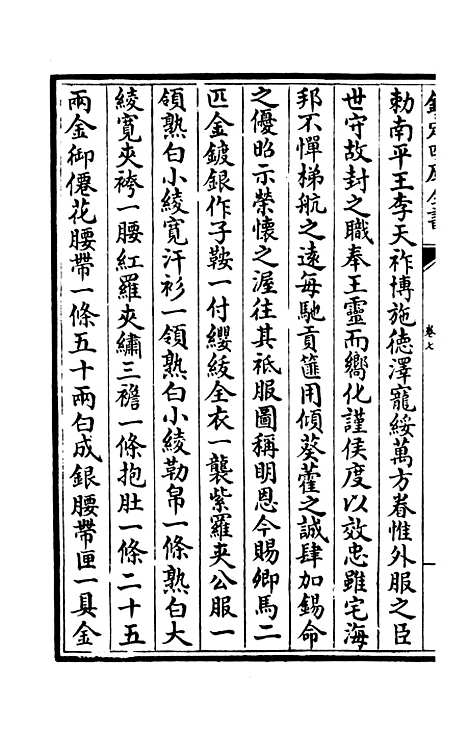 欽定四庫全書
卷七
勅南平王李天祚博施德澤寵綏萬方眷惟外服之臣
世守故封之職奉王靈而嚮化謹侯度以效忠雖宅海
邦不憚梯航之遠每馳貢篚用傾葵藿之誠肆加錫命
之優昭示榮懷之渥往其祗服圖稱明恩今賜卿馬二
匹金鍍銀作子鞍一付纓紱全衣一襲紫羅夾公服一
領熟白小綾寛汗衫一領熟白小綾勒帛一條熟白大
綾寛夾袴一腰紅羅夾繡三襜一條抱肚一條二十五
兩金御僊花腰帶一條五十兩白成銀腰帶匣一具金